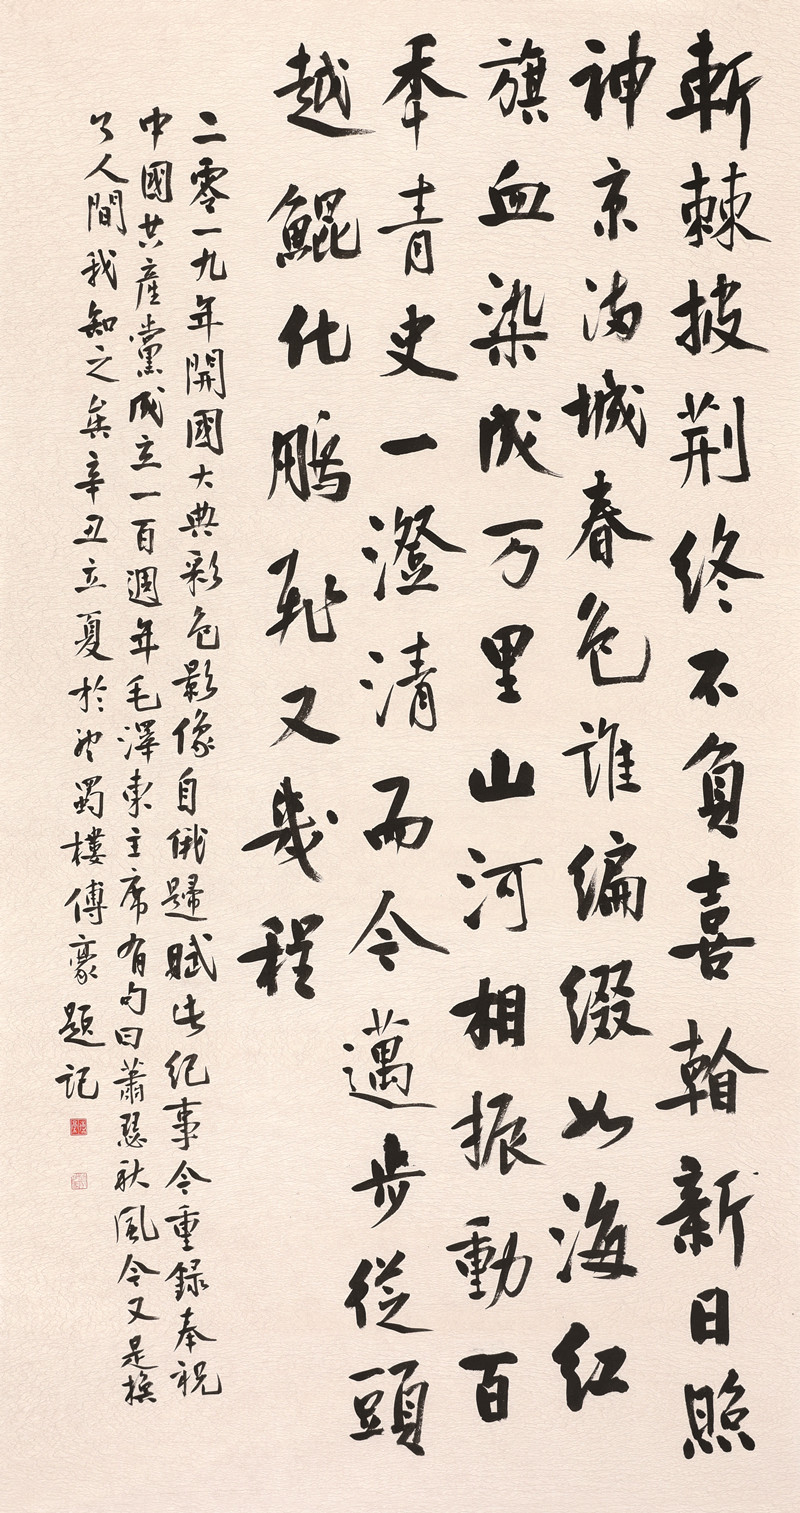 斬棘披荆终不負喜看新日照
神京满城春色誰編缀如海红
旗血染成万里山河相振動百
年青史一澄清而今邁步從頭
越鯤化鹏飛又幾程
二零一九年開國大典彩色影像自俄歸賦此紀事今重録奉祝
中國共產黨成立一百週年毛澤東主席有句曰蕭瑟秋風今又是換
了人間我知之矣辛丑立夏於蜀樓傅豪題記